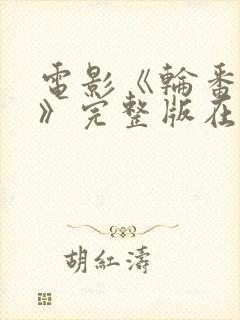 電影《輪番
》完整版在
胡紅濤